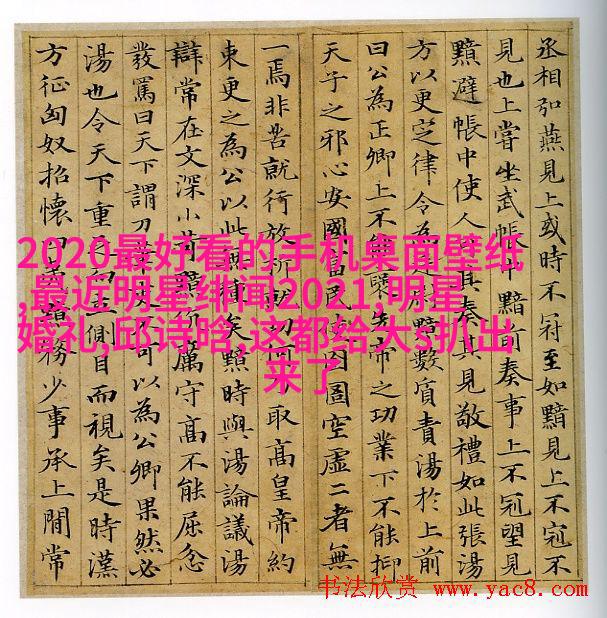 丞相弘燕見上或時不冠至如黯見上不冠不
見也上嘗坐武帳中黯前奏事上不冠望見
黯避帳中使人其奏其見敬禮如此張湯
方以更定律令為黯數質責湯於上前
曰公為正卿上不能先帝之功業下不能抑
天子之邪心安國富民使囹圄空虛二者無
一焉非苦就行放析就功何取高皇帝約
束更之為公以此無矣黯時與湯論議湯
辯常在文深小苛黯厲守高不能屈忿
發罵曰天下謂刀筆不可以為公卿果然必
湯也令天下重足而立側目而視矣是時漢
方征匈奴招懷四黯務少事承上間常
2020最好看的手机桌面壁纸
,最近明星绯闻2021,明星
婚礼,邱诗晗,这都给大s扒出
来了
书法欣赏 www.yac8.com